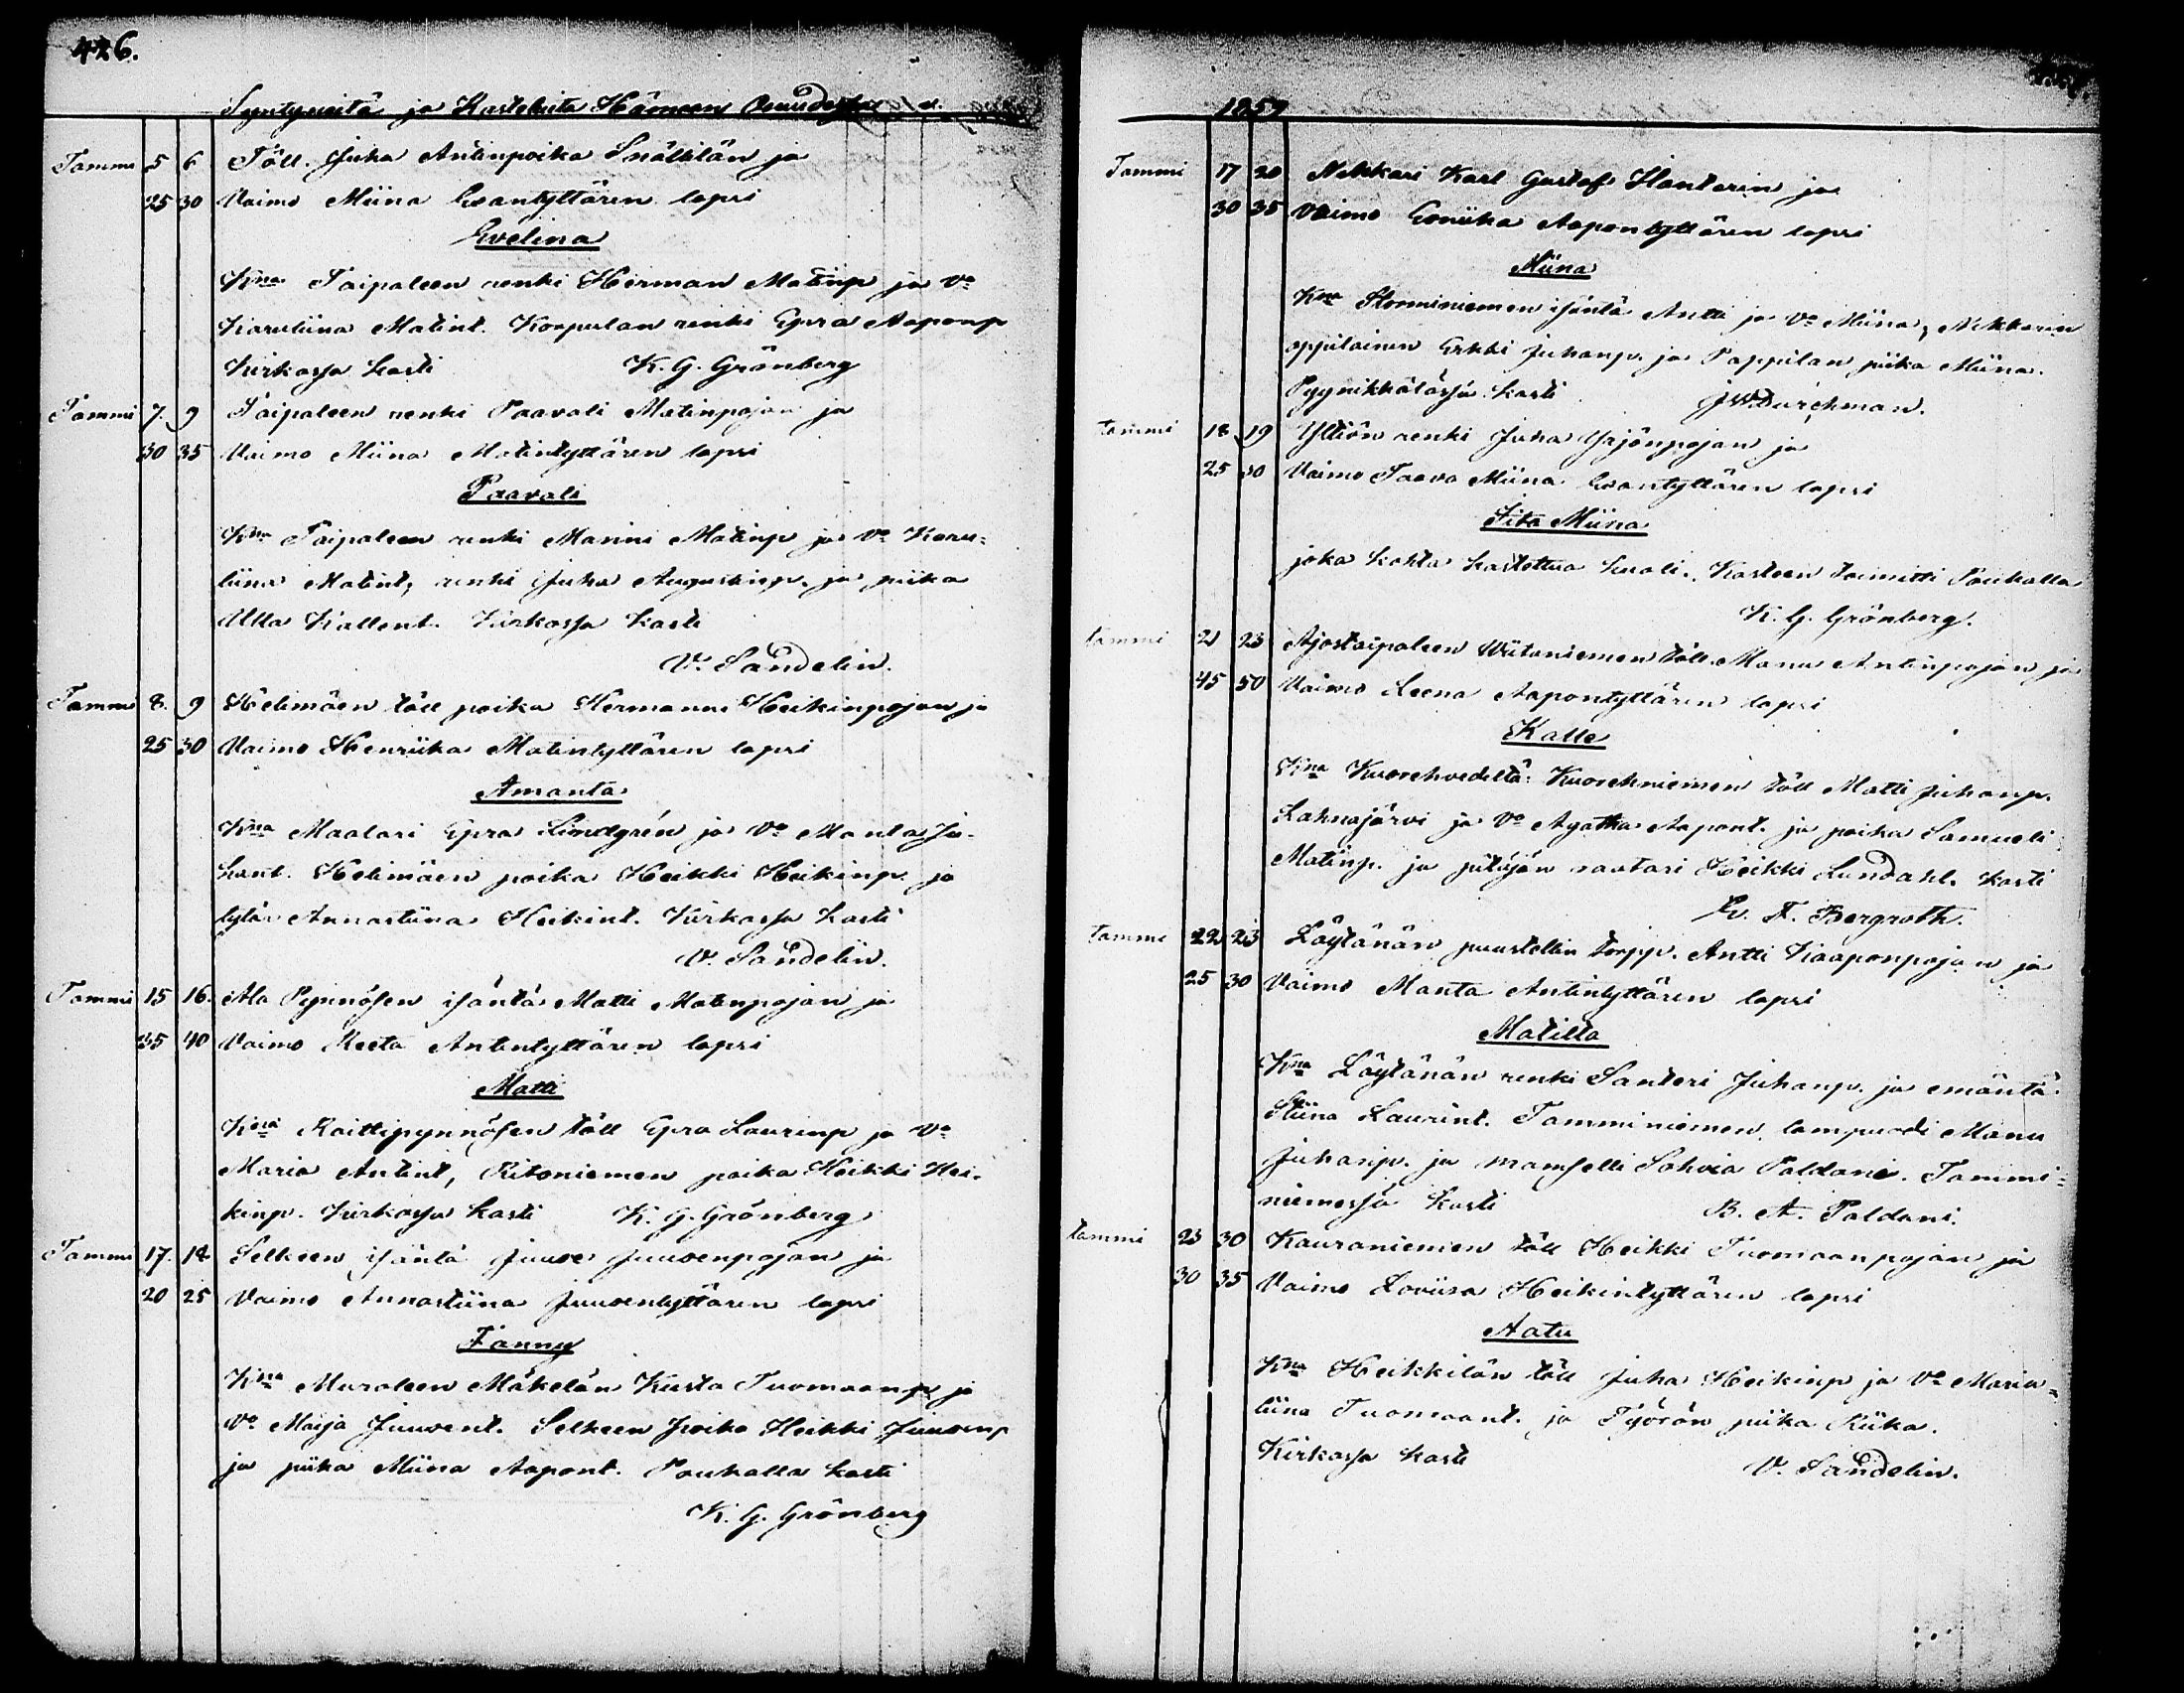 426.
Syntyneitä ja Kasteluita Hämeen
Tammi 5 6 Töll. Juha Antinpoika Snällilän ja
25 30 Vaimo Miina Esantyttären lapsi
Evelina
Kna Taipaleen renki Herman Matinp ja Vo
Karuliina Matint. Korpulan renki Epra Aaponp
kirkossa kasti K. G. Grönberg
Tammi 7. 9 Taipaleen renki Paavali Matinpojan ja
30 35 Vaimo Miina Matintyttären lapsi
Paavali
Kna Taipaleen renki Manni Matinp ja Vo Karu=
liina Matint, renki Juha Augustinp. ja piika
Ulla Kallent. Kirkossa kasti
V. Sandelin.
Tammi 8. 9 Helimäen töll poika Hermanni Heikinpojan ja
25 30 Vaimo Henriika Matintyttären lapsi
Amanta
Kna Maalari Epra Lindgrén ja Vo Manta Ju-
hant. Helimäen poika Heikki Heikinp. ja
tytär Annastiina Heikint. Kirkossa kasti
V. Sandelin.
Tammi 15 16. Ala Pynnösen isäntä Matti Matinpojan ja
35 40 Vaimo Reeta Antintyttären lapsi
Matti
Kna Raittipynnösen töll Epra Laurinp ja Vo
Maria Antint, Ritoniemen poika Heikki Hei-
kinp. kirkossa kasti K. G. Grönberg
Tammi 17. 18 Selkeen isäntä Juuse Juusenpojan ja
20 25 Vaimo Annastiina Juusentyttären lapsi
Fanny
Kna Muroleen Mäkelän Kusta Tuomaanp ja
Vo Maija Juusent. Selkeen poika Heikki Juusenp
ja piika Miina Aapont. Pouhalla kasti
K. G. Grönberg
1859
Tammi 17 20 Nikkari Karl Gustaf Hanterin ja
30 35 Vaimo Eeniika Aapontyttären lapsi
Miina
Kna Storminiemen isäntä Antti ja Vo Miina, Nikkarin
oppilainen Erkki Juhanp. ja Pappilan piika Miina.
Pyynikkälässä kasti J W Durchman.
tammi 18 19 Yltiön renki Juha Yrjönpojan ja
25 30 Vaimo Taava Miina Esantyttären lapsi
Iita Miina
joka kohta kastettua kuoli. Kasteen toimitti Pouhalla
K. G. Grönberg.
tammi 21 23 Ajostaipaleen Wiitaniemen töll. Manu Antinpojan ja
45 50 Vaimo Leena Aapontyttären lapsi
Kalle
Kna Kuorehvedeltä: Kuorehniemen töll Matti Juhanp.
Lahnajärvi ja Vo Agatha Aapont. ja poika Samueli
Matinp. ja pitäjän raatari Heikki Lundahl. kasti
Ev. F. Bergroth.
tammi 22 23 Löytänän puustellin torpp. Antti Kaaponpojan ja
25 30 Vaimo Manta Antintyttären lapsi
Matilta
Kna Löytänän renki Santeri Juhanp. ja emäntä
Stiina Laurint. Tamminiemen lampuodi Manu
Juhanp. ja mamselli Sohvia Paldani. Tammi=
niemessä kasti B. A. Paldani.
tammi 23 30 Kauraniemen töll Heikki Tuomaanpojan ja
30 35 Vaimo Loviisa Heikintyttären lapsi
Aatu
Kna Heikkilän töll Juha Heikinp ja Vo Maria=
liina Tuomaant. ja Työrön piika Riika.
Kirkossa kasti V. Sandelin.